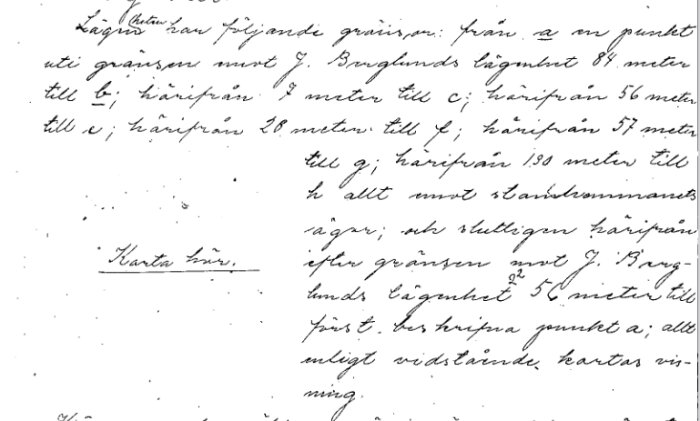 Lägenheten har följande gränsor: från a en punkt
uti gränsen mot J. Berglunds lägenhet 84 meter
till b; härifrån 7 meter till c; härifrån 56 meter
till e; härifrån 28 meter till f; härifrån 57 meter
till g; härifrån 130 meter till
h allt mot stamhemmanets
ägor; och slutligen härifrån
Karta här.
efter gränsen mot J. Berg-
lunds lägenhet 22 56 meter till
först beskrifna punkt a; allt
enligt vidstående kartas vis-
ning.